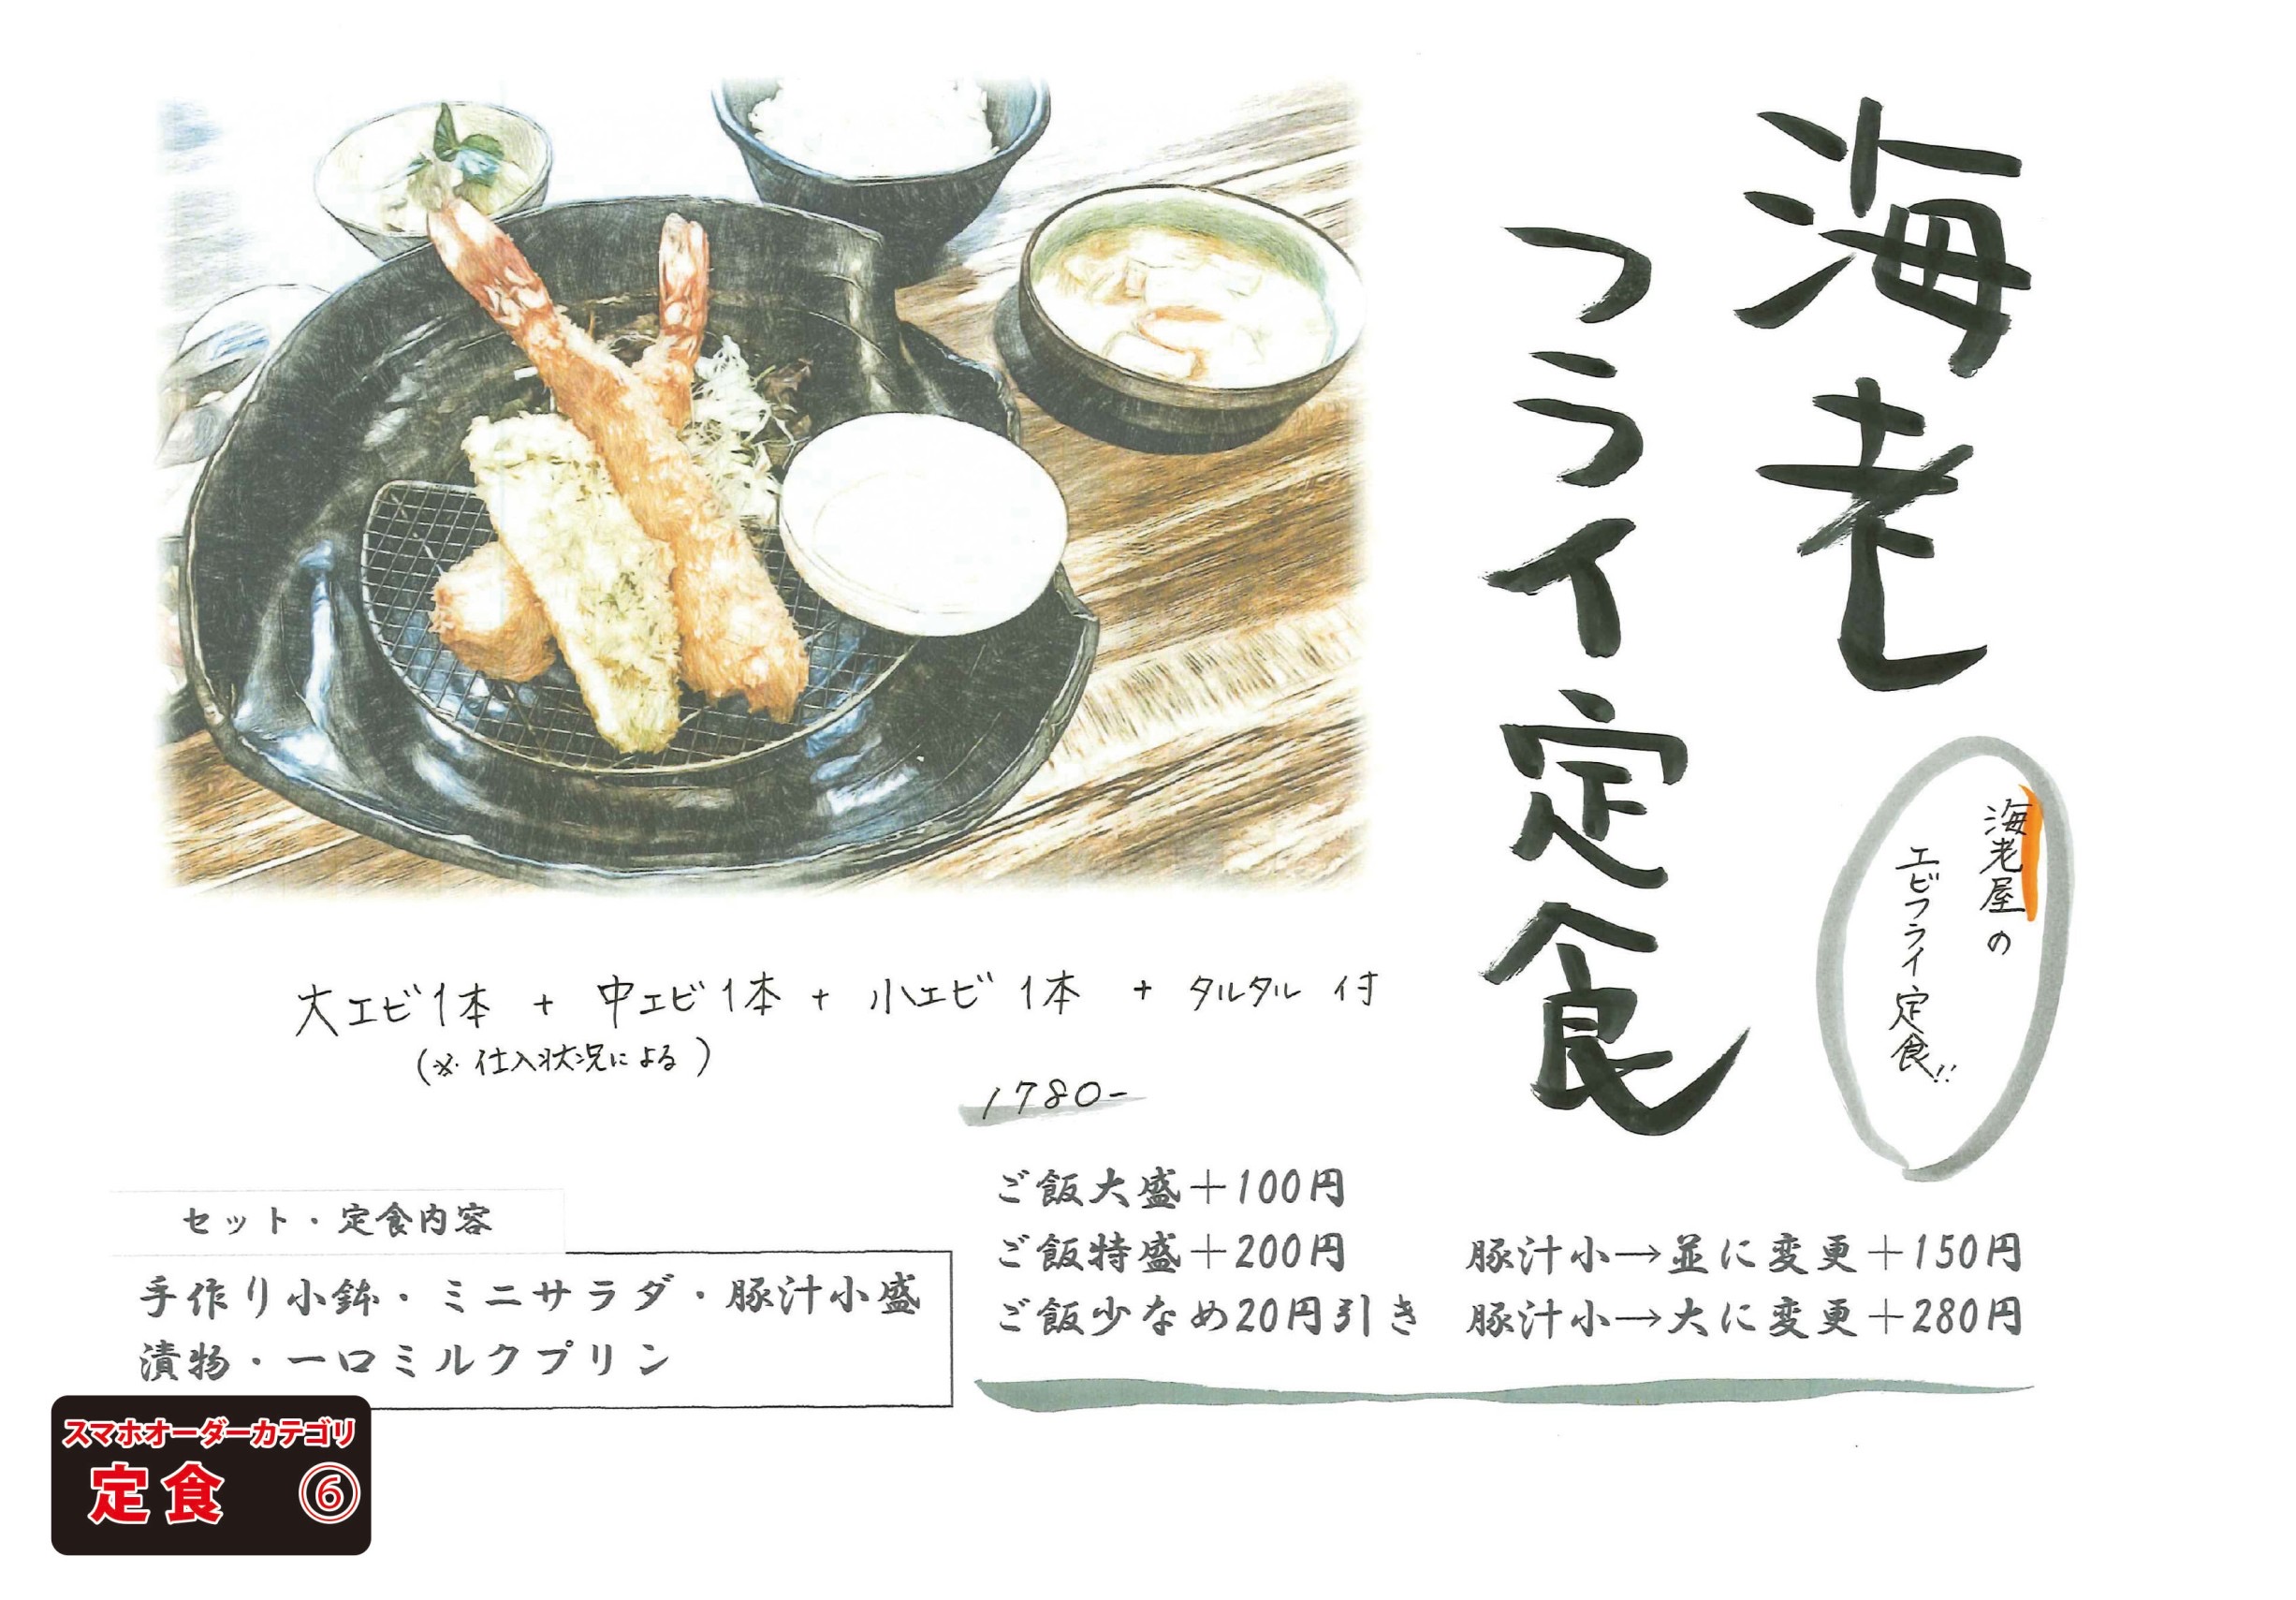 海老
フライ定食
海老屋の
エビフライ定食!!
大エビ1本 + 中エビ1本 + 小エビ1本 + タルタル付
(※仕入状況による)
1780-
セット・定食内容
手作り小鉢・ミニサラダ・豚汁小盛
漬物・一口ミルクプリン
ご飯大盛+100円
ご飯特盛+200円
ご飯少なめ20円引き
豚汁小→並に変更+150円
豚汁小→大に変更+280円
スマホオーダーカテゴリ
定食 ⑥